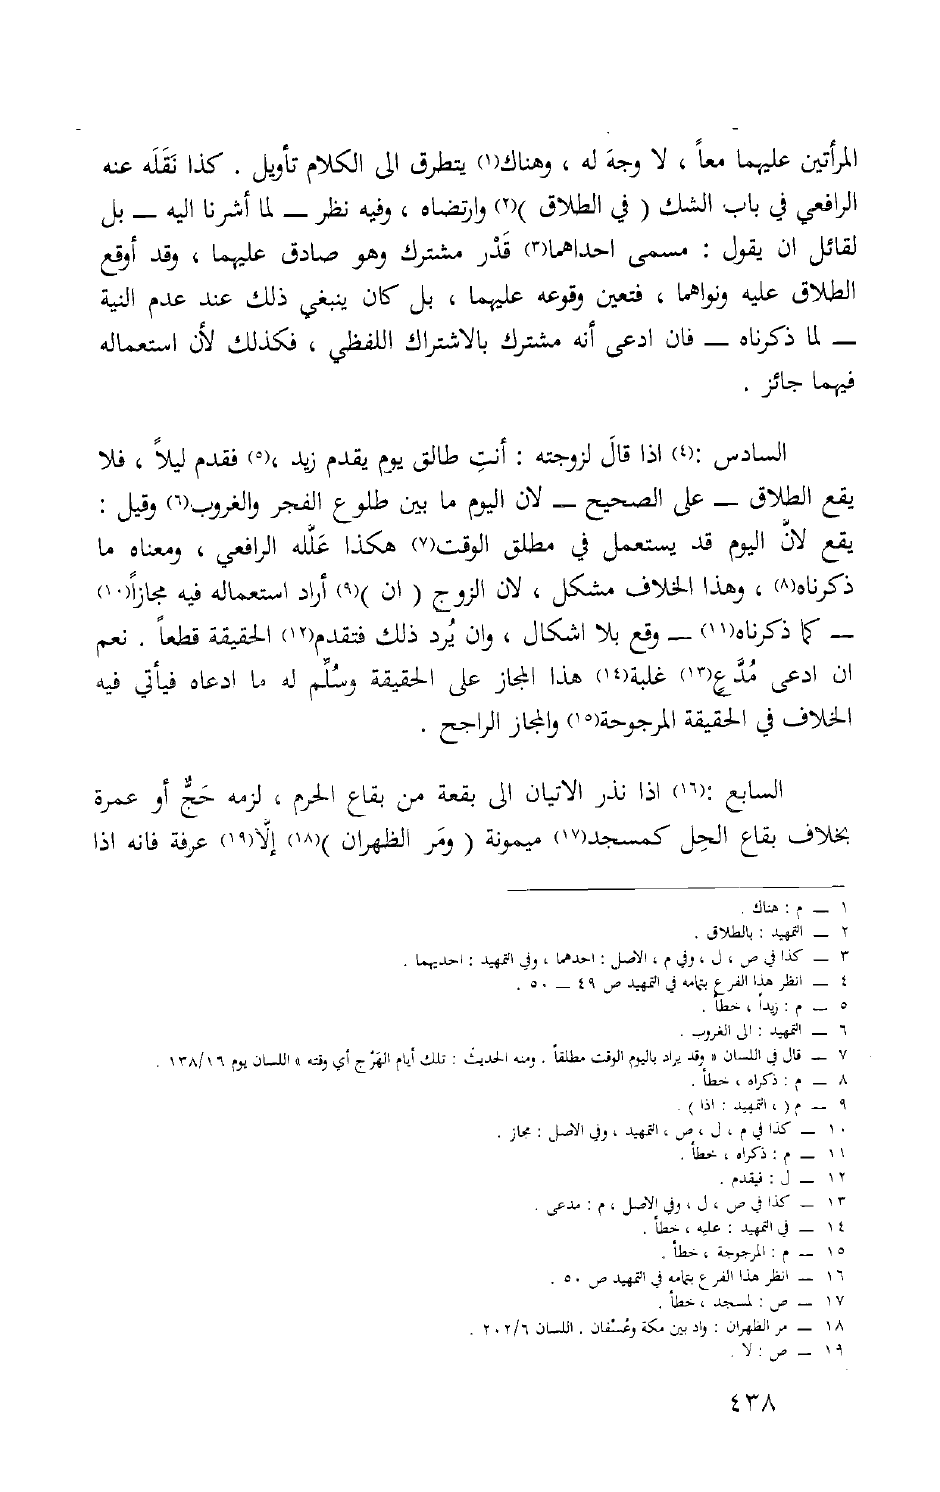 المرأتين عليهما معاً ، لا وجهَ له ، وهناك(١) يتطرق الى الكلام تأويل . كذا نَقَلَه عنه
الرافعي في باب الشك ( في الطلاق )(٢) وارتضاه ، وفيه نظر — لما أشرنا اليه — بل
لقائل ان يقول : مسمى احداهما(٣) قَدْر مشترك وهو صادق عليهما ، وقد أوقع
الطلاق عليه ونواهما ، فتعين وقوعه عليهما ، بل كان ينبغي ذلك عند عدم النية
— لما ذكرناه — فان ادعى أنه مشترك بالاشتراك اللفظي ، فكذلك لأن استعماله
فيهما جائز .
السادس :(٤) اذا قالَ لزوجته : أنتِ طالق يوم يقدم زيد ،(٥) فقدم ليلاً ، فلا
يقع الطلاق — على الصحيح — لان اليوم ما بين طلوع الفجر والغروب(٦) وقيل :
يقع لانّ اليوم قد يستعمل في مطلق الوقت(٧) هكذا عَلّله الرافعي ، ومعناه ما
ذكرناه(٨) ، وهذا الخلاف مشكل ، لان الزوج ( ان )(٩) أراد استعماله فيه مجازاً(١٠)
— كما ذكرناه(١١) — وقع بلا اشكال ، وان يُرد ذلك فتقدم(١٢) الحقيقة قطعاً . نعم
ان ادعى مُدَّعٍ(١٣) غلبة(١٤) هذا المجاز على الحقيقة وسُلِّم له ما ادعاه فيأتي فيه
الخلاف في الحقيقة المرجوحة(١٥) والمجاز الراجح .
السابع :(١٦) اذا نذر الاتيان الى بقعة من بقاع الحرم ، لزمه حَجٌّ أو عمرة
بخلاف بقاع الحِل كمسجد(١٧) ميمونة ( ومَر الظهران )(١٨) إلّا(١٩) عرفة فانه اذا
١ — م : هناك .
٢ — التمهيد : بالطلاق .
٣ — كذا في ص ، ل ، وفي م ، الاصل : احدهما ، وفي التمهيد : احديهما .
٤ — انظر هذا الفرع بتمامه في التمهيد ص ٤٩ — ٥٠ .
٥ — م : زيداً ، خطأ .
٦ — التمهيد : الى الغروب .
٧ — قال في اللسان « وقد يراد باليوم الوقت مطلقاً . ومنه الحديث : تلك أيام الهَرْج أي وقته » اللسان يوم ١٣٨/١٦ .
٨ — م : ذكراه ، خطأ .
٩ — م ( ، التمهيد : اذا ) .
١٠ — كذا في م ، ل ، ص ، التمهيد ، وفي الاصل : مجاز .
١١ — م : ذكراه ، خطأ .
١٢ — ل : فيقدم .
١٣ — كذا في ص ، ل ، وفي الاصل ، م : مدعى .
١٤ — في التمهيد : عليه ، خطأ .
١٥ — م : المرجوجة ، خطأ .
١٦ — انظر هذا الفرع بتمامه في التمهيد ص ٥٠ .
١٧ — ص : لمسجد ، خطأ .
١٨ — مر الظهران : واد بين مكة وعُسْفان . اللسان ٢٠٢/٦ .
١٩ — ص : لا .
٤٣٨